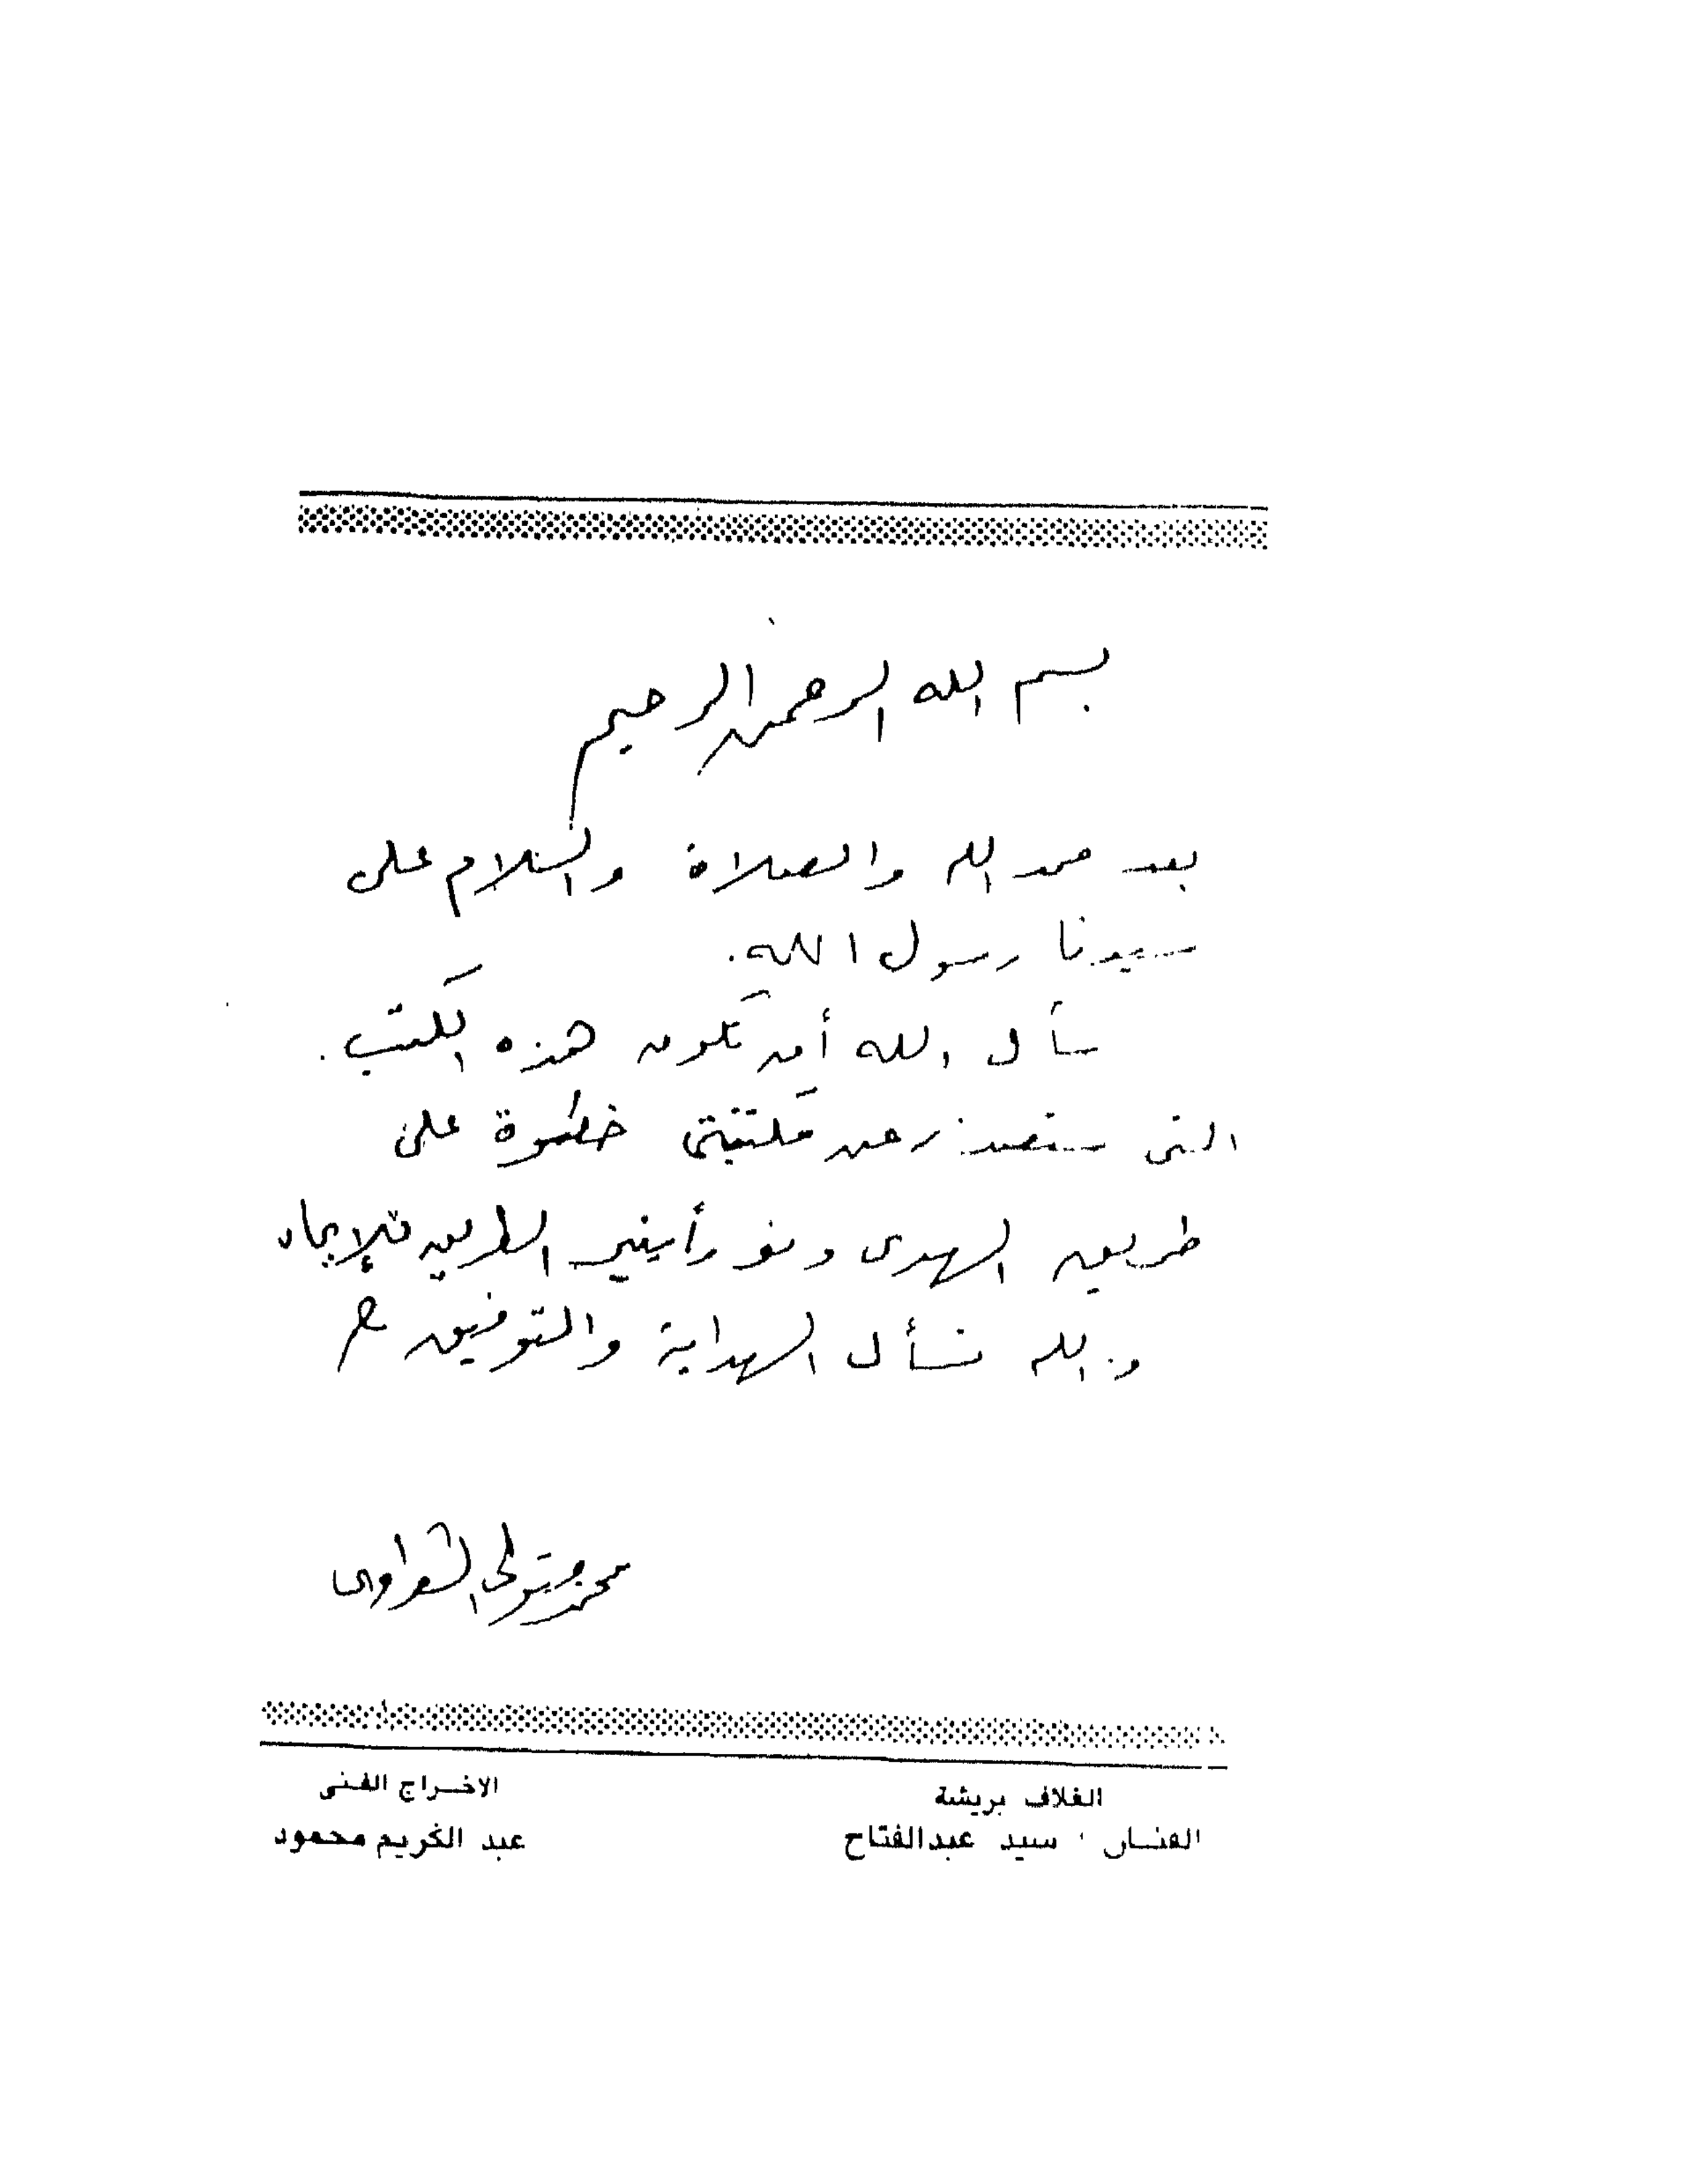 بسم الله الرحمن الرحيم
بعد حمد الله والصلاة والسلام على
سيدنا رسول الله.
نسأل الله أن تكون هذه الكتب.
التى ستصدر عن مكتبتى خطوة على
طريق الهدى ونورأ ينير الطريق للإيمان
والله نسأل الهداية والتوفيق
محمد متولى الشعراوى
الغلاف بريشة
الفنان سيد عبدالفتاح
الاخراج الفنى
عبد الكريم محمود